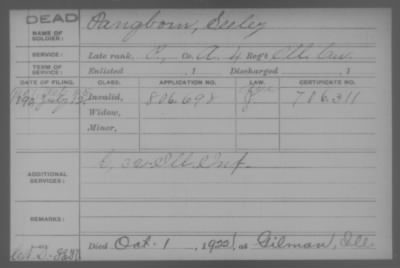 DEAD
NAME OF SOLDIER: Pangborn, Seeley
SERVICE: Late rank, Co. A, 4 Reg't Ill. Cav.
TERM OF SERVICE: Enlisted , 1 Discharged , 1
DATE OF FILING. CLASS. APPLICATION NO. LAW. CERTIFICATE NO.
Invalid, 806.698 786.311
Widow,
Minor,
ADDITIONAL SERVICES: Ill. Inf.
REMARKS:
Died Oct. 1, 1922, at Gilman, Ill.